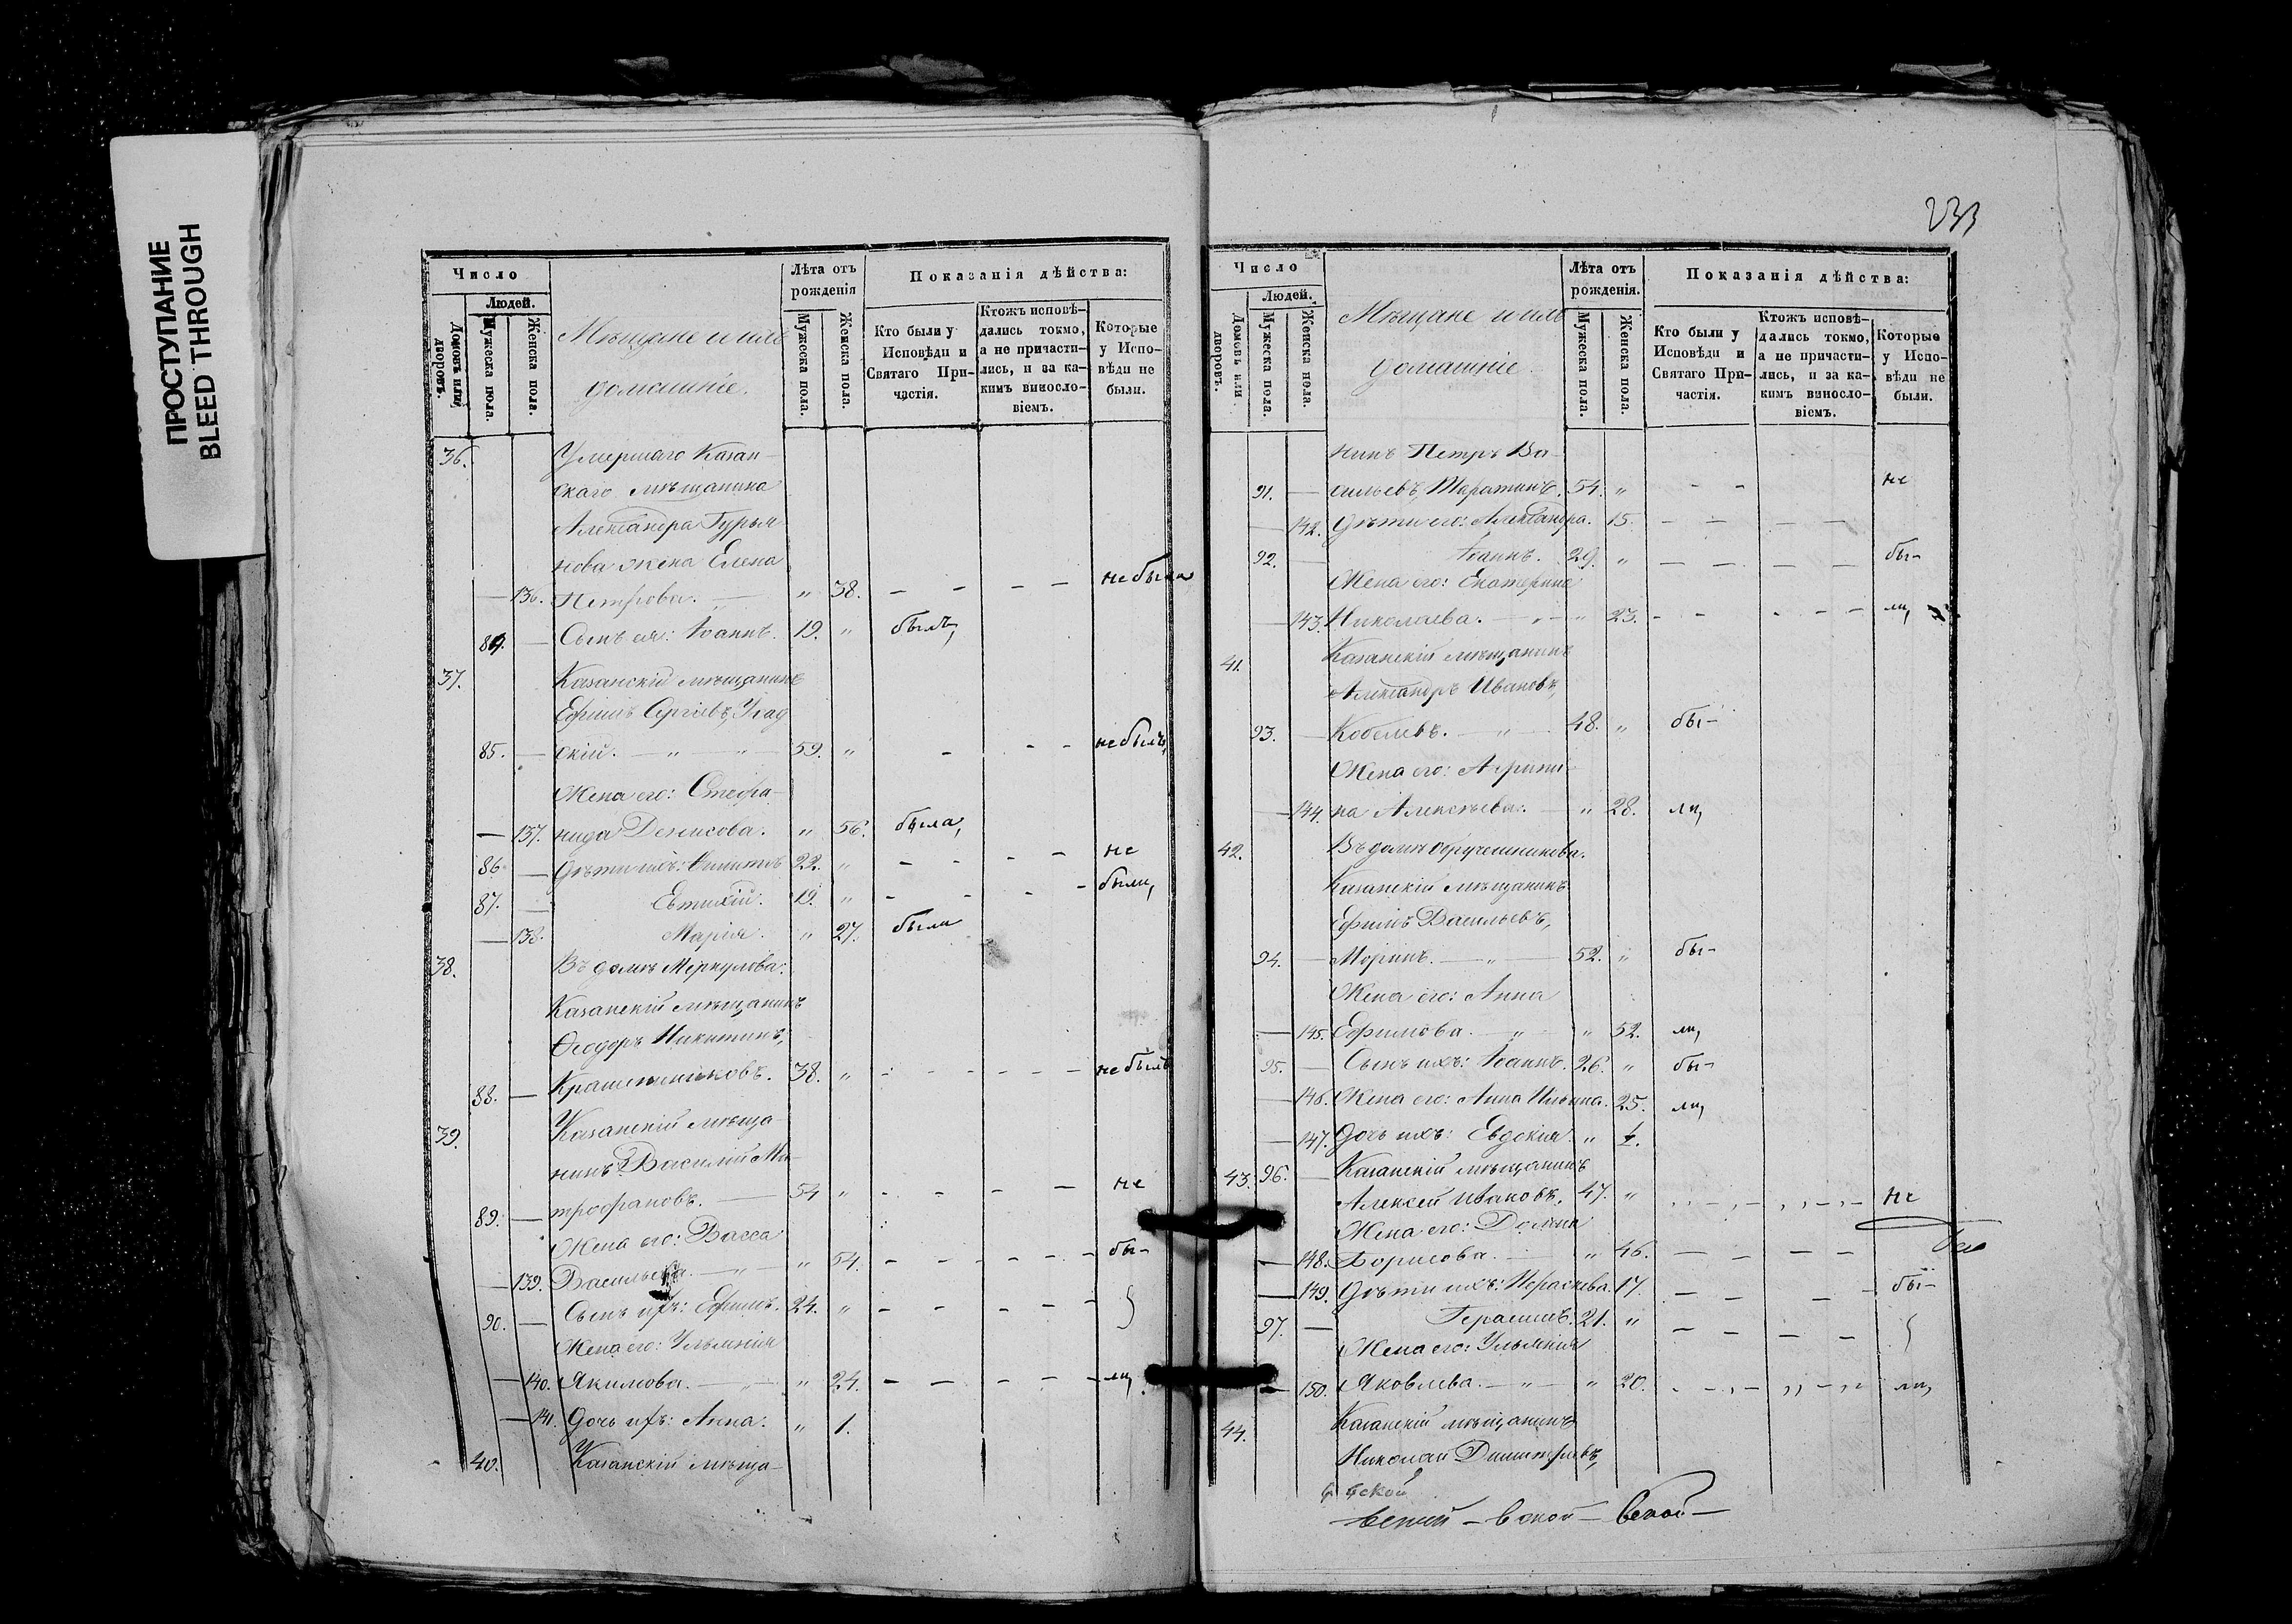 ПРОСТУПАНИЕ
BLEED THROUGH
Число
Людей.
Домовъ или дворовъ.
Мужеска пола.
Женска пола.
Мѣщане и ихъ
домашніе.
Лѣта отъ
рожденія
Мужеска пола.
Женска пола.
Показанія дѣйства:
Кто были у
Исповѣди и
Святаго При-
частія.
Ктожъ исповѣ-
дались токмо,
а не причасти-
лись, и за ка-
кимъ виносло-
віемъ.
Которые
у Испо-
вѣди не
были.
36. Умершаго Казан-
скаго мѣщанина
Александра Гурья-
нова жена Елена
136. Петрова. „ 38. – – – – не была
84. Сынъ ея: Іоаннъ. 19. „ былъ,
37. Казанскій мѣщанинъ
Ефимъ Сергіевъ,
85. скій. „ „ 59. „ – – – не былъ,
Жена его: Стефа-
137. нида Денисова. „ 56. была,
86. дѣти ихъ: 22. „ – – – – не
87. Евтихій. 19. „ – – – – были,
138. Марія. „ 27. была
38. Въ домѣ Меркулова:
Казанскій мѣщанинъ
Ѳеодоръ Никитинъ,
88. Крашенинниковъ. 38. „ – – – – – не былъ
39. Казанскій мѣща-
нинъ Василій Ми-
89. трофановъ. 54 „ – – – – не
Жена его: Васса
139. Васильева. „ „ 54. – – – – – бы-
90. Сынъ ихъ: Ефимъ. 24. „ – – – – –
Жена его: Ульянія
140. Якимова. „ „ 24. – – – – – ли,
141. Дочь ихъ: Анна. „ 1.
40. Казанскій мѣща-
233
Число
Людей.
Домовъ или дворовъ.
Мужеска пола.
Женска пола.
Мѣщане и ихъ
домашніе.
Лѣта отъ
рожденія.
Мужеска пола.
Женска пола.
Показанія дѣйства:
Кто были у
Исповѣди и
Святаго При-
частія.
Ктожъ исповѣ-
дались токмо,
а не причасти-
лись, и за ка-
кимъ виносло-
віемъ.
Которые
у Испо-
вѣди не
были.
нинъ Петръ Ва-
91. сильевъ, 54. „ – – не
142. дѣти его: Александра. 15. – – – –
92. Іоаннъ. 29. „ – – – – бы-
Жена его: Екатерина
143. Николаева. „ „ 23. – – – – – ли,
41. Казанскій мѣщанинъ
Александръ Ивановъ,
93. Кобелевъ. „ 48. „ бы-
Жена его: Агрипи-
144. на Алексѣева. „ 28. ли,
42. Въ домѣ Обручникова.
Казанскій мѣщанинъ
Ефимъ Васильевъ,
94. Моринъ. „ 52. „ бы-
Жена его: Анна
145. Ефимова. „ „ 52. ли,
95. Сынъ ихъ: Іоаннъ. 26. „ бы-
146. Жена его: Анна Ильина. 25. ли,
147. Дочь ихъ: Евдокія. „
43. 96. Казанскій мѣщанинъ
Алексѣй Ивановъ. 47. „ не
Жена его: Домна
148. Борисова. „ 46. – – – –
149. Дѣти ихъ: Параскева. 17. – – – – бы-
97. Герасимъ. 21. „ – – – –
Жена его: Ульянія
150. Яковлева. „ „ 20. ли,
44. Казанскій мѣщанинъ
Николай Димитріевъ,
ской
вской – вской –